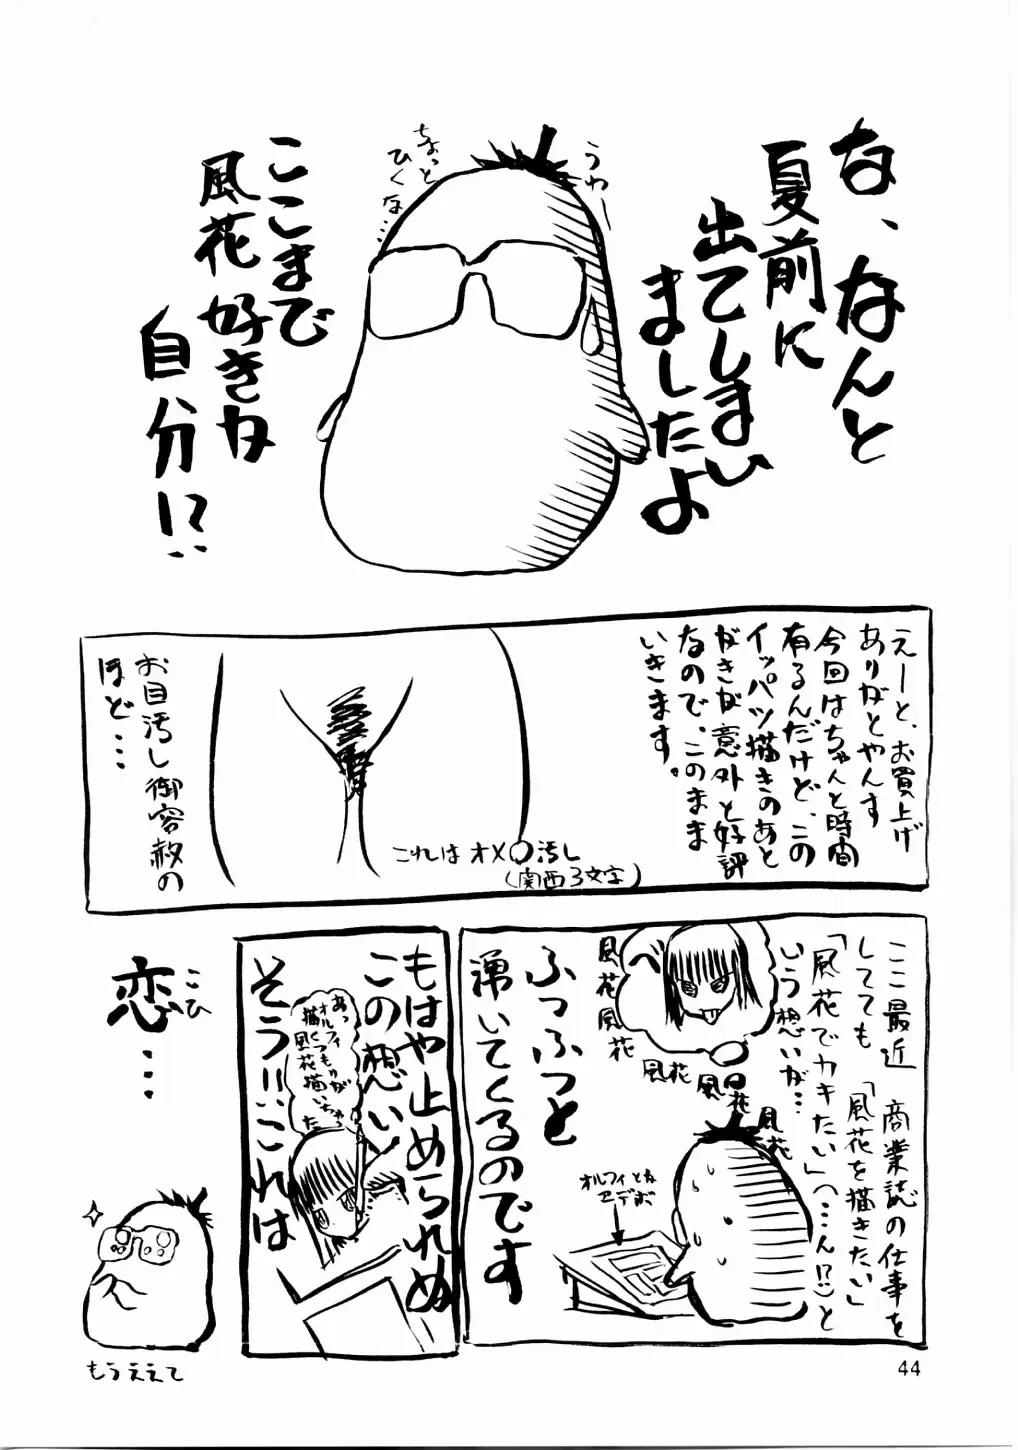 な、なんと
夏前に
出てしまい
ましたよ
うわー
ちょっと
ひくな…
ここまで
風花 好きカ
自分!?
えーと、お買上げ
ありがとやんす
今回はちゃんと時間
有るんだけど、この
イッパツ描きのあと
がきが意外と好評
なので、このまま
いきます。
これはオメ〇汚し
(関西3文字)
お目汚し御容赦の
ほど…
ここ最近 商業誌の仕事を
してても 「風花を描きたい」
「風花でカキたい」(…ん!?)と
いう想いが…
風花
風花
風花
風花
風花
オルフィとか
セデボ
ふつふつと
湧いてくるのです
もはや止められぬ
この想い
あっ
オルフィ
描くつもりが
風花描いちゃ
った
そう!!これは
恋…
こひ
もうええて
44